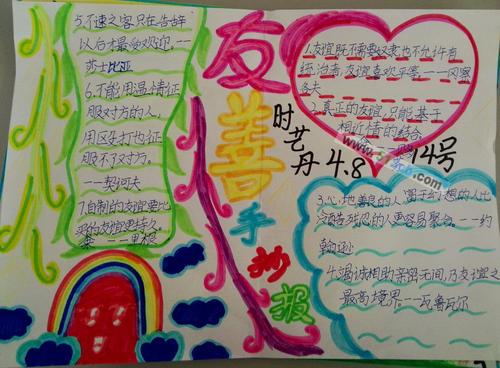 5.不速之客只在告辞
以后才最受欢迎。——
莎士比亚
6.不能用温情征
服对方的人,
用殴打也征
服不了对方。
——契诃夫
7.自制的友谊要比
买的友谊更持久。
——里根
友
善
手
抄
报
时
艺
丹
4.8
14号
1.友谊既不需要奴隶也不允许有
统治者,友谊喜欢平等——冈察
洛夫
2.真正的友谊,只能基于
相近情的结合
3.心地善良的人、富于幻想的人比
冷酷残忍的人更容易聚合。——约
翰逊
4.竭诚相助亲密无间,乃友谊之
最高境界——瓦鲁瓦尔